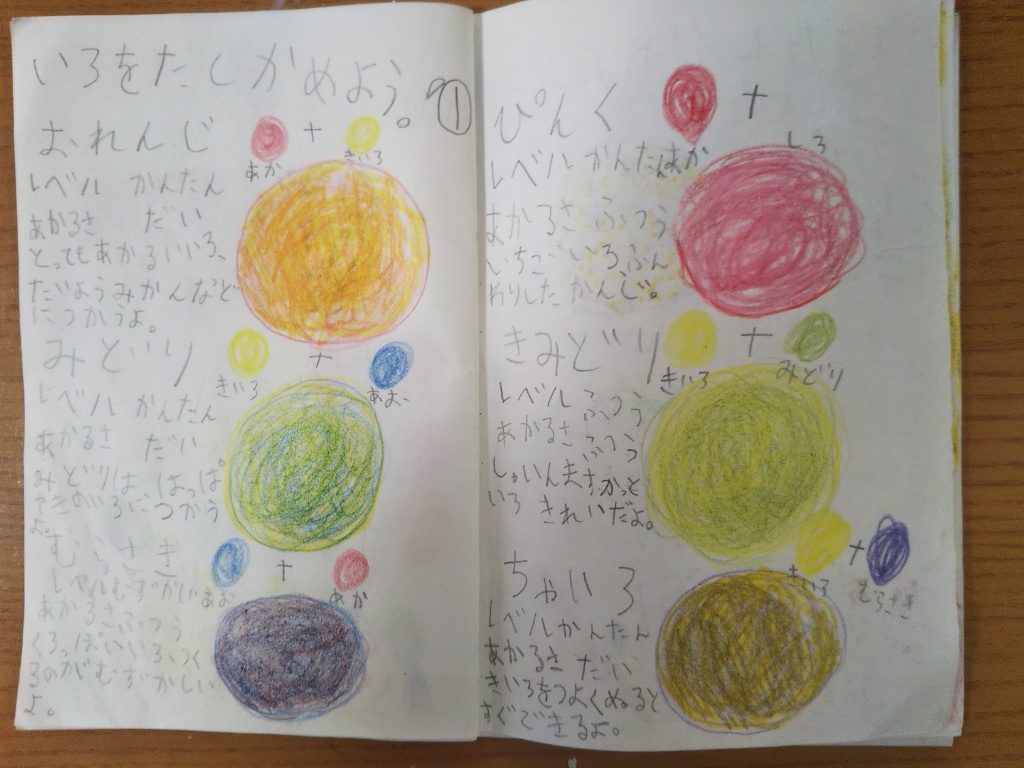 いろをたしかめよう。
①
おれんじ
あか + きいろ
レベル かんたん
あかるさ だい
とってもあかるいいろ、
たいようみかんなど
につかうよ。
みどり
きいろ + あお
レベル かんたん
あかるさ だい
みどりは はっぱ
やきのいろにつかう
よ。
むらさき
あお + あか
レベルむずかしい
あかるさふつう
くろっぽいいろ、つく
るのがむずかしい
よ。
ぴんく
あか + しろ
レベル かんたん
あかるさ ふつう
いちごいろふん
わりしたかんじ。
きみどり
きいろ + みどり
レベル ふつう
あかるさ ふつう
しゃいんますかっと
いろ きれいだよ。
ちゃいろ
きいろ + むらさき
レベルかんたん
あかるさ だい
きいろをつよくぬると
すぐできるよ。